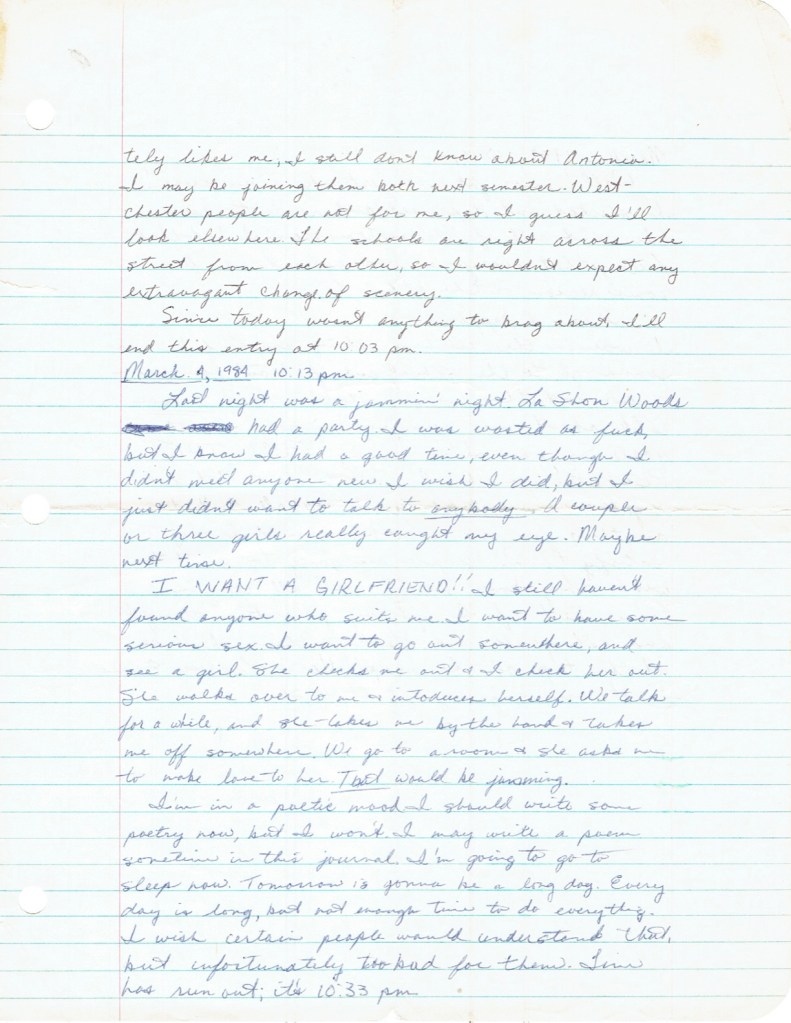 tely likes me, I still don't know about Antonia.
I may be joining them both next semester. West-
chester people are not for me, so I guess I'll
look elsewhere. The schools are right across the
street from each other, so I wouldn't expect any
extravagant change of scenery.
Since today wasn't anything to brag about, I'll
end this entry at 10:03 pm.
March 4, 1984 10:13 pm
Last night was a jammin' night. La Shon Woods
had a party. I was wasted as fuck,
but I know I had a good time, even though I
didn't meet anyone new. I wish I did, but I
just didn't want to talk to anybody. A couple
or three girls really caught my eye. Maybe
next time.
I WANT A GIRLFRIEND!! I still haven't
found anyone who suits me. I want to have some
serious sex. I want to go out somewhere, and
see a girl. She checks me out & I check her out.
She walks over to me & intoduces herself. We talk
for a while, and she takes me by the hand & takes
me off somewhere. We go to a room & she asks me
to make love to her. That would be jamming.
I'm in a poetic mood. I should write some
poetry now, but I won't. I may write a poem
sometime in this journal. I'm going to go to
sleep now. Tomorrow is gonna be a long day. Every
day is long, but not enough time to do everything.
I wish certain people would understand that,
but unfortunately too bad for them. Time
has run out; it's 10:33 pm